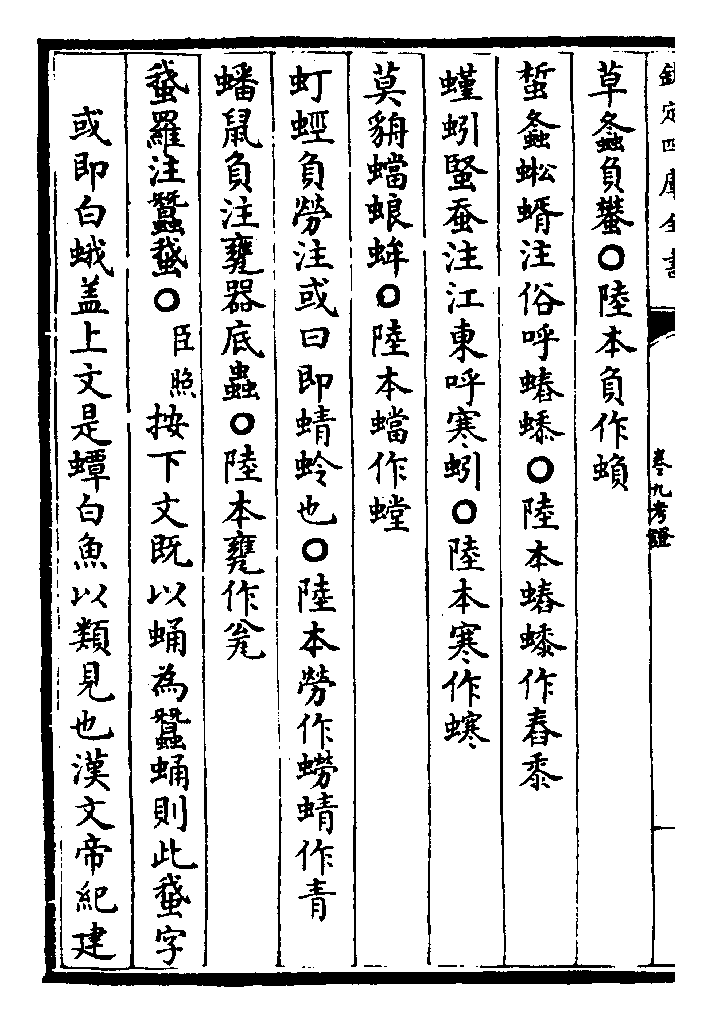 欽定四庫全書
卷九考證
草螽負蠜○陸本負作蝜
蜤螽蜙蝑注俗呼蝽䗥○陸本蝽䗥作舂黍
螼蚓蜸蚕注江東呼寒蚓○陸本寒作螼
莫貈蟷蜋蛑○陸本蟷作螳
虰蛵負勞注或曰即蜻蛉也○陸本勞作蟧蜻作青
蟠鼠負注甕器底蟲○陸本甕作瓮
蛾羅注蠶蛾○臣照按下文既以蛹為蠶蛹則此蛾字
或即白蛾盖上文是蟫白魚以類見也漢文帝紀建